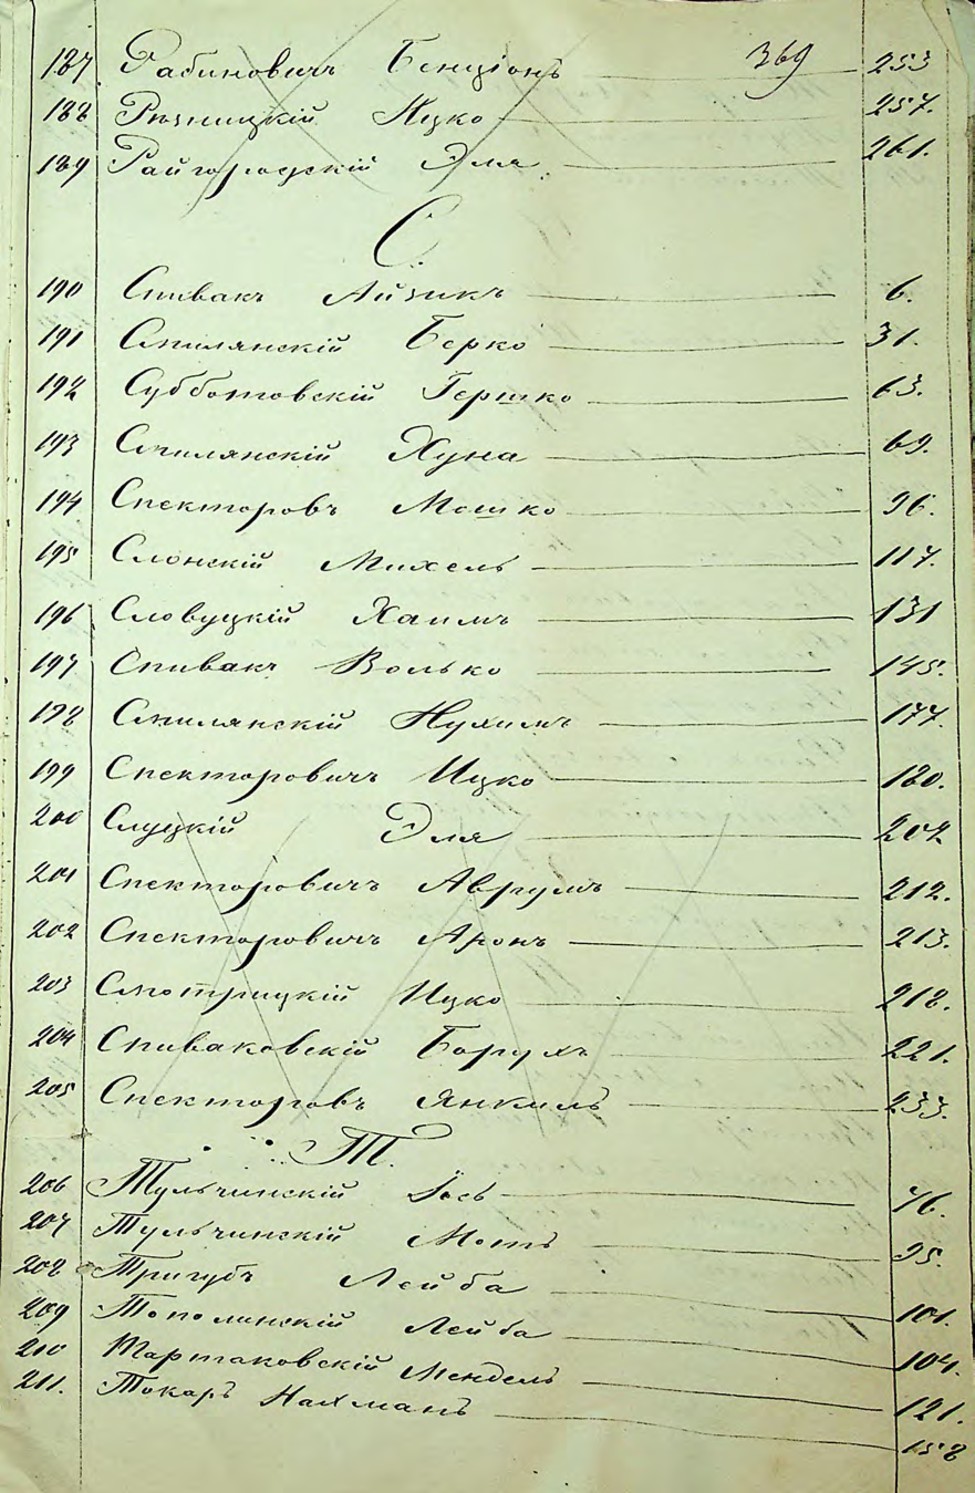 369
187 Рабиновичъ Бенціонъ 253
188 Рѣзницкій Ицко 257.
189 Райгородскій Эля 261.
С.
190 Спивакъ Айзикъ 6.
191 Смилянскій Берко 31.
192 Субботовскій Гершко 63.
193 Смилянскій Хуна 69.
194 Спекторовъ Мошко 96.
195 Слонскій Михель 117.
196 Словуцкій Хаимъ 131
197 Спивакъ Волько 145.
198 Смилянскій Нухимъ 177.
199 Спекторовичъ Ицко 180.
200 Слуцкій Эля 202
201 Спекторовичъ Аврумъ 212.
202 Спекторовичъ Аронъ 213.
203 Смотрицкій Ицко 218.
204 Спиваковскій Борухъ 221.
205 Спекторовъ Янкель 233.
Т.
206 Тульчинскій Іось 76.
207 Тульчинскій Моть 95.
208 Тригубъ Лейба 101.
209 Тополинскій Лейба 104.
210 Тартаковскій Мендель 121.
211. Токарь Нахманъ 158